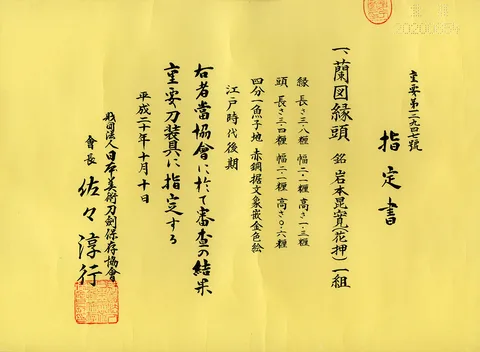 重要第一二九四七號
指定書
一、蘭図縁頭 銘 岩本昆寛(花押) 一組
縁 長さ三・八糎 幅二・一糎 高さ一・三糎
頭 長さ三・四糎 幅一・七糎 高さ〇・六糎
四分一魚子地 赤銅据文象嵌金色絵
江戸時代後期
右者當協會に於て審査の結果
重要刀装具に指定する
平成二十年十月十日
財団法人日本美術刀剣保存協會
會長 佐々淳行